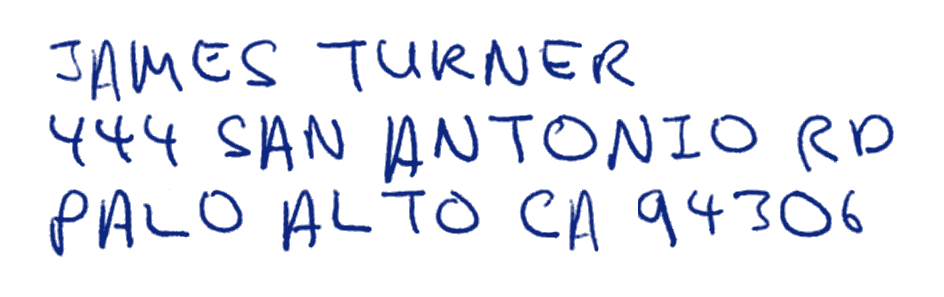 JAMES TURNER
444 SAN ANTONIO RD
PALO ALTO CA 94306